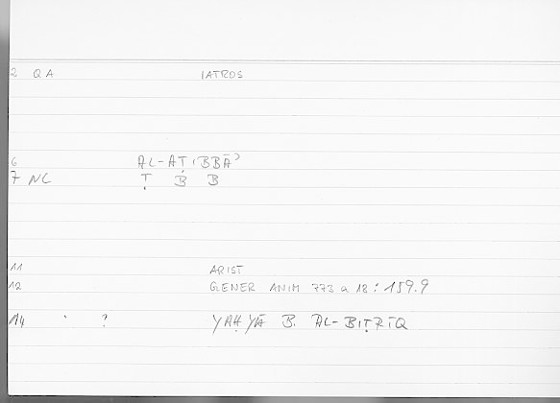 2 QA IATROS
6 AL-AṬIBBĀʾ
7 NC Ṭ B B
11 ARIST
12 GENER ANIM 773 a 18 : 159.9
14 ? YAḤYĀ B. AL-BIṬRĪQ